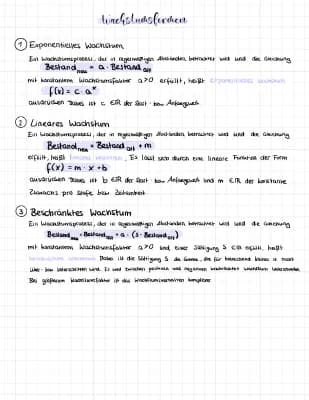 Wachstumsformen
① Exponentielles Wachstum
Ein Wachstumsprozess, der in regelmäßigen Abständen betrachtet wird und die Gleichung
Bestand neu = a · Bestand alt
mit konstantem Wachstumsfaktor a>0 erfüllt, heißt exponentielles Wachstum
f(x) = c · a^x
ausdrücken. Dabei ist c ∈ℝ der Start- bzw. Anfangswert
② Lineares Wachstum
Ein Wachstumsprozess, der in regelmäßigen Abständen betrachtet wird und die Gleichung
Bestand neu = Bestand alt + m
erfüllt, heißt lineares Wachstum. Es lässt sich durch eine lineare Funktion der Form
f(x) = m · x + b
ausdrücken. Dabei ist b ∈ℝ der Start- bzw. Anfangswert und m ∈ℝ der konstante
Zuwachs pro Stufe bzw. Zeiteinheit.
③ Beschränktes Wachstum
Ein Wachstumsprozess, der in regelmäßigen Abständen betrachtet wird und die Gleichung
Bestand neu = Bestand alt + a · (S - Bestand alt)
mit konstantem Wachstumsfaktor a>0 und einer Sättigung S ∈ℝ erfüllt, heißt
beschränktes Wachstum. Dabei ist die Sättigung S die Grenze, die für
über- bzw. unterschritten wird. Es wird zwischen positivem und negativem beschränktem Wachstum unterschieden.
Bei größerem Wachstumsfaktor ist das Wachstumsverhalten komplexer